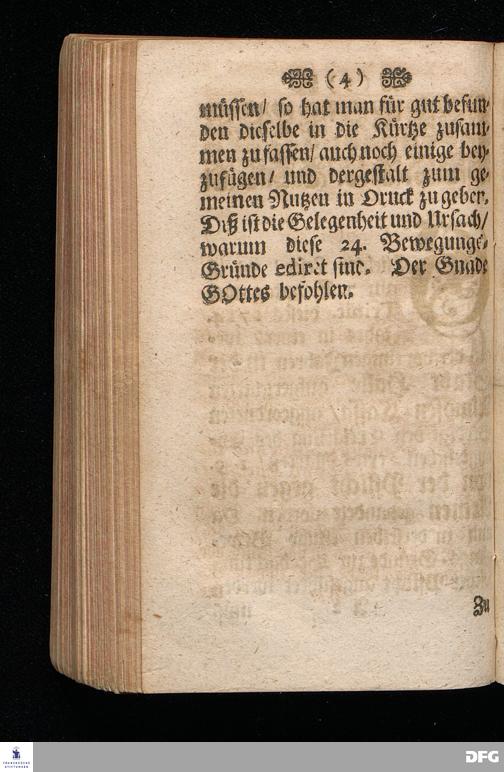 (4)
müssen/ so hat man für gut befun-
den dieselbe in die Kürtze zusam-
men zu fassen/ auch noch einige bey-
zufügen/ und dergestalt zum ge-
meinen Nutzen in Druck zu geben.
Diß ist die Gelegenheit und Ursach/
warum diese 24. Bewegungs-
Gründe ediret sind. Der Gnade
GOttes befohlen.
Zu
FRANCKESCHE
STIFTUNGEN
DFG